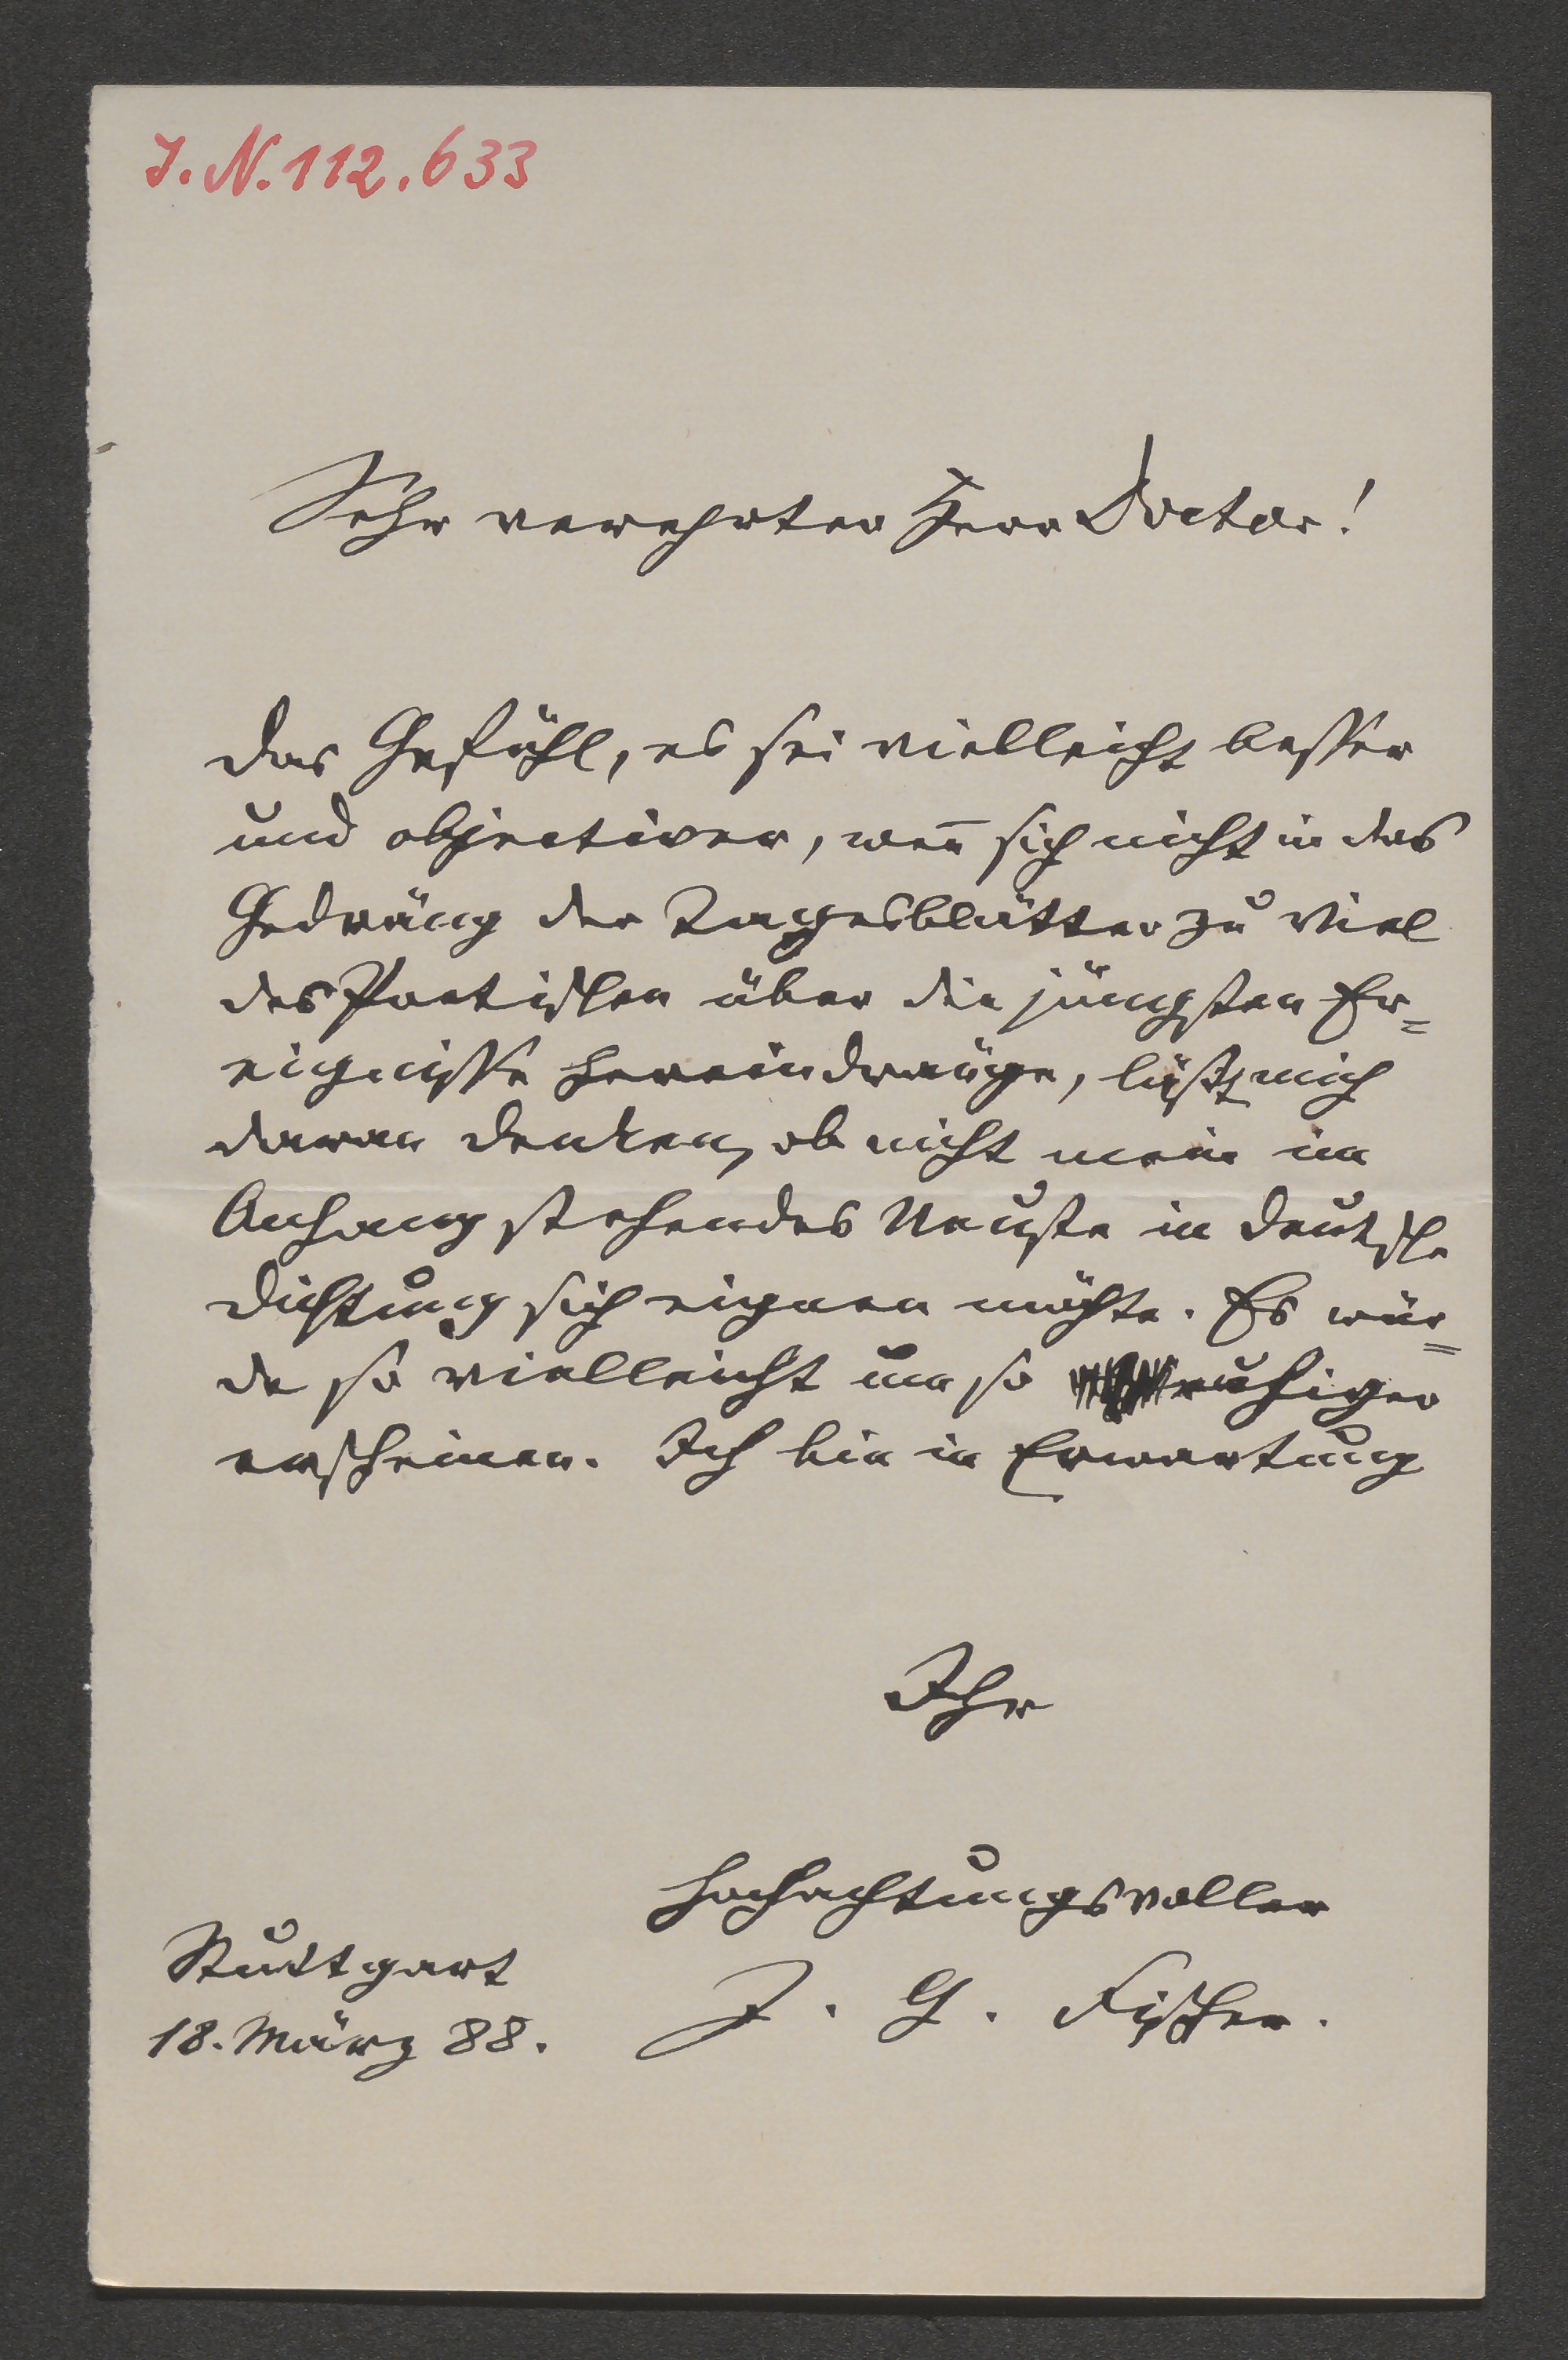 J. N. 112.633
Sehr verehrter Herr Doctor!
das Gefühl, es sei vielleicht besser
und objectiver, wen̅ sich nicht in das
Gedräng der Tagesblätter zu viel
des Poetischen über die jüngsten Er=
eignisse hereindränge, läßt mich
daran denken, ob nicht mein im
Anhang stehendes Neuste in deutsche
Dichtung sich eignen möchte. Es wür=
de so vielleicht um so ruhiger
erscheinen. Ich bin in Erwartung
Ihr
hochachtungsvoller
J. G. Fischer.
Stuttgart
18. März 88.